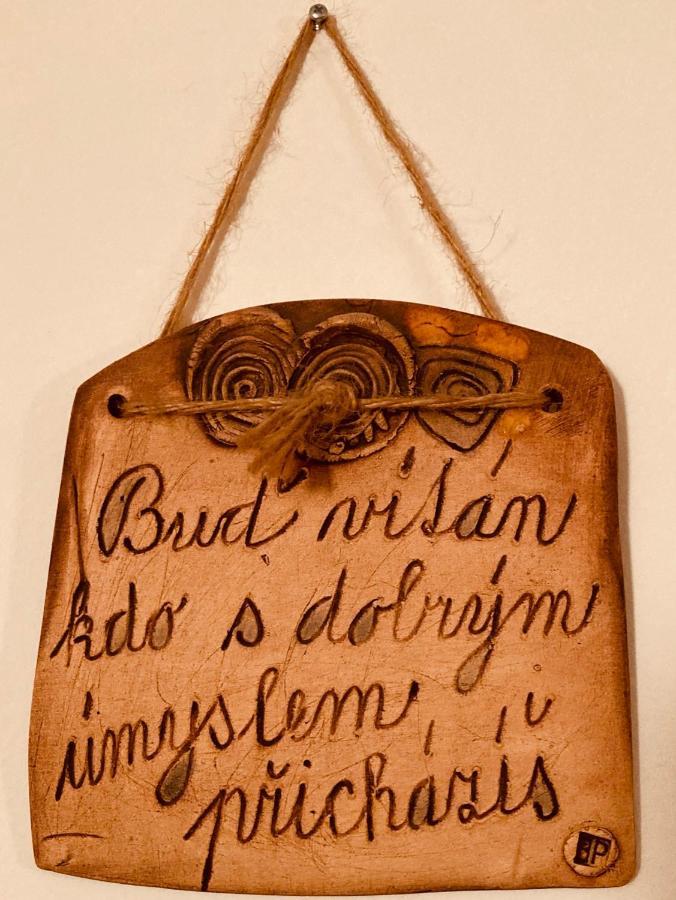 Buď vítán
kdo s dobrým
úmyslem
přicházíš
BP